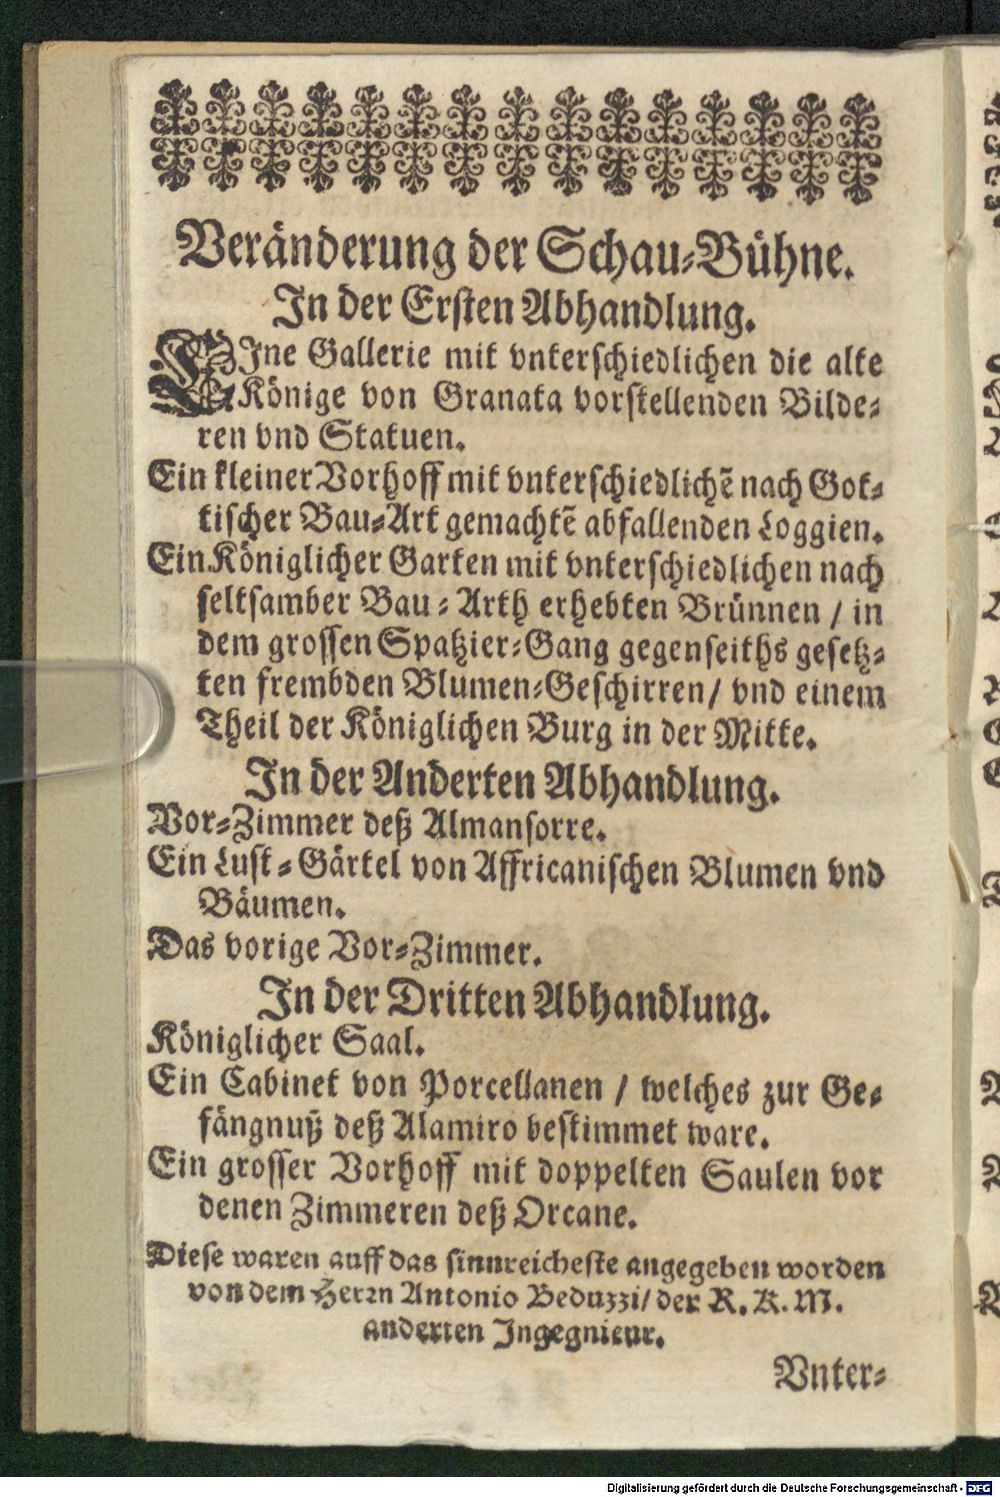 Veränderung der Schau-Bühne.
In der Ersten Abhandlung.
EIne Gallerie mit vnterschiedlichen die alte
Könige von Granata vorstellenden Bilde-
ren vnd Statuen.
Ein kleiner Vorhoff mit vnterschiedlichẽ nach Got-
tischer Bau-Art gemachtẽ abfallenden Loggien.
Ein Königlicher Garten mit vnterschiedlichen nach
seltsamber Bau-Arth erhebten Brünnen / in
dem grossen Spatzier-Gang gegenseiths gesetz-
ten frembden Blumen-Geschirren / vnd einem
Theil der Königlichen Burg in der Mitte.
In der Anderten Abhandlung.
Vor-Zimmer deß Almansorre.
Ein Lust-Gärtel von Affricanischen Blumen vnd
Bäumen.
Das vorige Vor-Zimmer.
In der Dritten Abhandlung.
Königlicher Saal.
Ein Cabinet von Porcellanen / welches zur Ge-
fängnuß deß Alamiro bestimmet ware.
Ein grosser Vorhoff mit doppelten Saulen vor
denen Zimmeren deß Orcane.
Diese waren auff das sinnreicheste angegeben worden
von dem Herꝛn Antonio Beduzzi / der R. K. M.
anderten Ingegnieur.
Vnter-
Digitalisierung gefördert durch die Deutsche Forschungsgemeinschaft - DFG